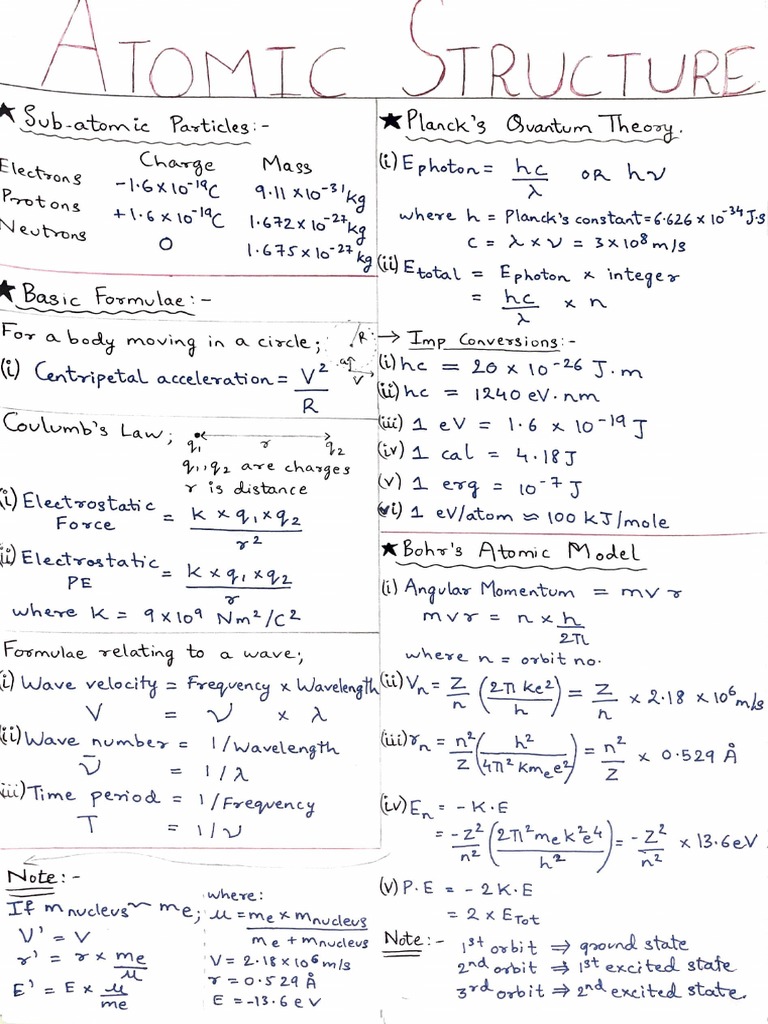 ATOMIC STRUCTURE
★ Sub-atomic Particles:-
Charge Mass
Electrons -1.6×10⁻¹⁹C 9.11×10⁻³¹kg
Protons +1.6×10⁻¹⁹C 1.672×10⁻²⁷kg
Neutrons 0 1.675×10⁻²⁷kg
★ Basic Formulae:-
For a body moving in a circle;
R
a
V
(i) Centripetal acceleration = V²/R
Coulumb's Law;
q₁ r q₂
q₁,q₂ are charges
r is distance
(i) Electrostatic Force = K×q₁×q₂/r²
(ii) Electrostatic PE = K×q₁×q₂/r
where K = 9×10⁹ Nm²/C²
Formulae relating to a wave;
(i) Wave velocity = Frequency × Wavelength
V = ν × λ
(ii) Wave number = 1/Wavelength
ν̄ = 1/λ
(iii) Time period = 1/Frequency
T = 1/ν
Note:-
If mnucleus ~ me;
V' = V
r' = r × me/μ
E' = E × μ/me
where:
μ = me × mnucleus/me + mnucleus
V = 2.18×10⁶ m/s
r = 0.529 Å
E = -13.6 eV
★ Planck's Quantum Theory.
(i) Ephoton = hc/λ OR hν
where h = Planck's constant = 6.626×10⁻³⁴ J.s
c = λ × ν = 3×10⁸ m/s
(ii) Etotal = Ephoton × integer
= hc/λ × n
→ Imp Conversions:-
(i) hc = 20 × 10⁻²⁶ J.m
(ii) hc = 1240 eV.nm
(iii) 1 eV = 1.6 × 10⁻¹⁹ J
(iv) 1 cal = 4.18J
(v) 1 erg = 10⁻⁷ J
(vi) 1 eV/atom ≈ 100 kJ/mole
★ Bohr's Atomic Model
(i) Angular Momentum = mvr
mvr = n × h/2π
where n = orbit no.
(ii) Vn = Z/n (2πKe²/h) = Z/n × 2.18 × 10⁶ m/s
(iii) rn = n²/Z (h²/4π²Kmee²) = n²/Z × 0.529 Å
(iv) En = -K.E
= -Z²/n² (2π²meK²e⁴/h²) = -Z²/n² × 13.6 eV
(v) P.E = -2K.E
= 2 × ETot
Note:- 1st orbit ⇒ ground state
2nd orbit ⇒ 1st excited state
3rd orbit ⇒ 2nd excited state.